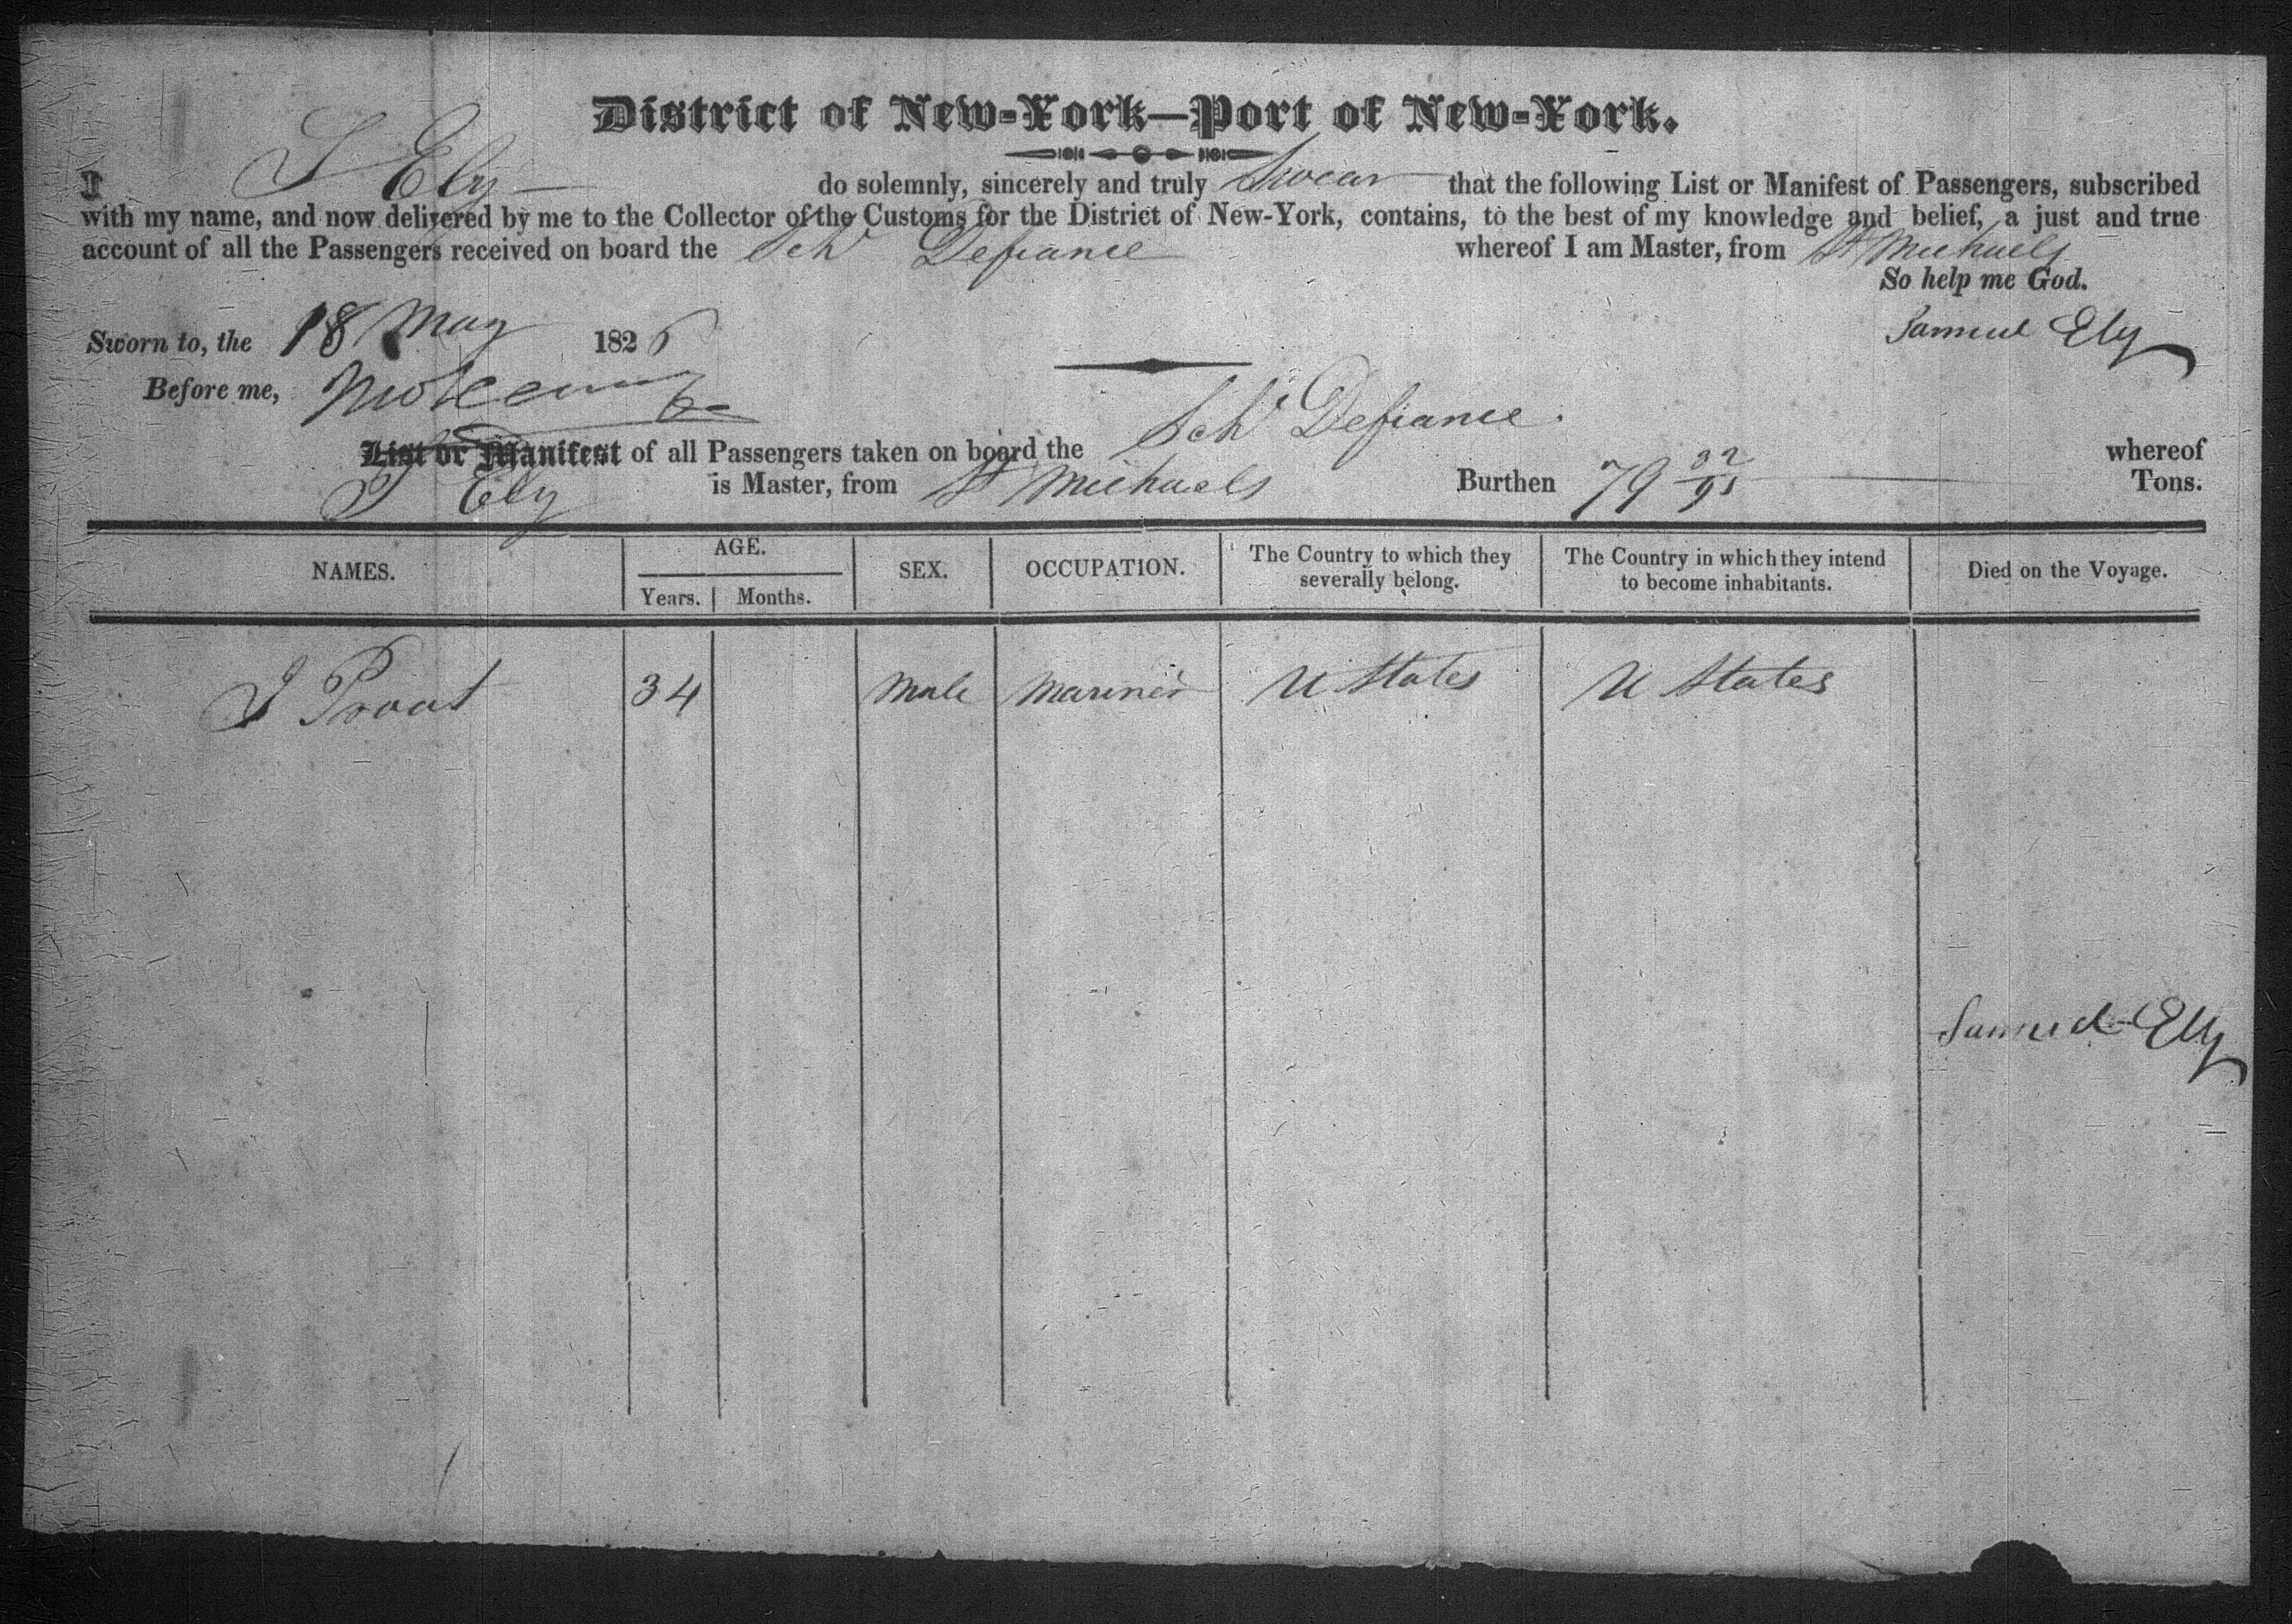 District of New-York—Port of New-York.
I S Ely do solemnly, sincerely and truly Swear that the following List or Manifest of Passengers, subscribed
with my name, and now delivered by me to the Collector of the Customs for the District of New-York, contains, to the best of my knowledge and belief, a just and true
account of all the Passengers received on board the Schr Defiance whereof I am Master, from St Michaels
So help me God.
Sworn to, the 18 May 1826 Samuel Ely
Before me,
List or Manifest of all Passengers taken on board the Schr Defiance. whereof
S Ely is Master, from St Michaels Burthen 79 32/95 Tons.
NAMES. AGE. SEX. OCCUPATION. The Country to which they severally belong. The Country in which they intend to become inhabitants. Died on the Voyage.
Years. Months.
J Prout 34 Male Mariner U States U States
Samuel Ely